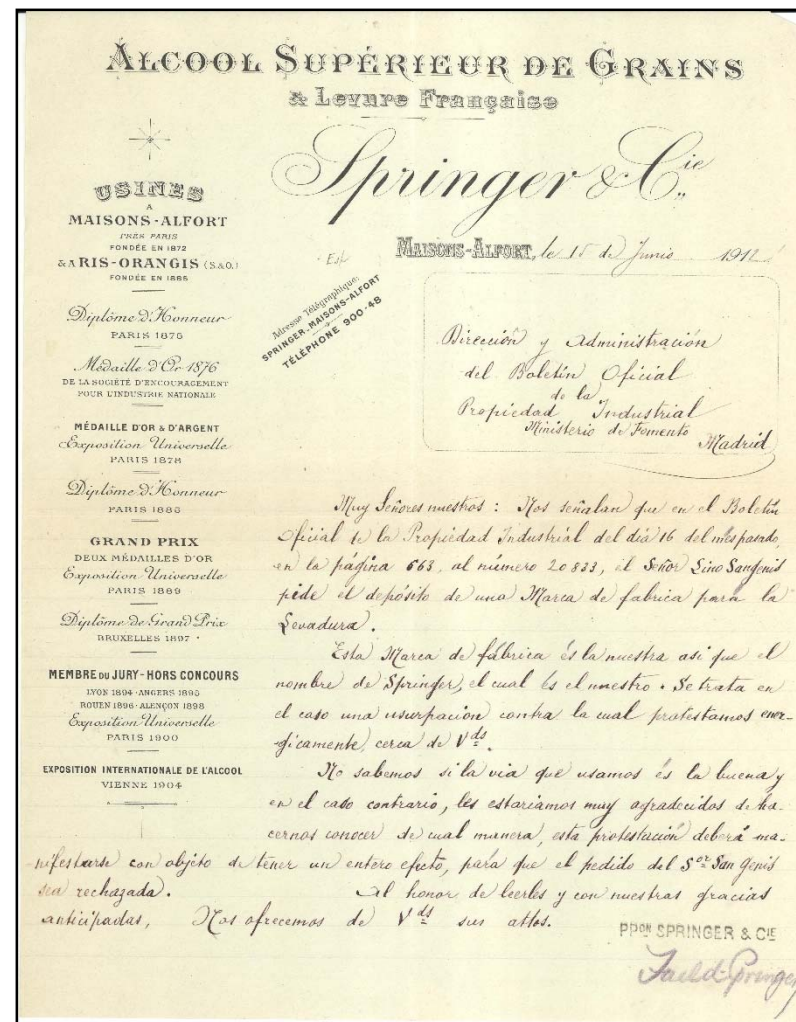 ALCOOL SUPÉRIEUR DE GRAINS
& Levure Française
Springer & Cie
USINES
A
MAISONS-ALFORT
PRÈS PARIS
FONDÉE EN 1872
& A RIS-ORANGIS (S.&O.)
FONDÉE EN 1885
Diplôme d'Honneur
PARIS 1875
Médaille d'Or 1876
DE LA SOCIÉTÉ D'ENCOURAGEMENT
POUR L'INDUSTRIE NATIONALE
MÉDAILLE D'OR & D'ARGENT
Exposition Universelle
PARIS 1878
Diplôme d'Honneur
PARIS 1885
GRAND PRIX
DEUX MÉDAILLES D'OR
Exposition Universelle
PARIS 1889
Diplôme de Grand Prix
BRUXELLES 1897
MEMBRE DU JURY-HORS CONCOURS
LYON 1894-ANGERS 1895
ROUEN 1896-ALENÇON 1898
Exposition Universelle
PARIS 1900
EXPOSITION INTERNATIONALE DE L'ALCOOL
VIENNE 1904
Adresse Télégraphique:
SPRINGER-MAISONS-ALFORT
TÉLÉPHONE 900-48
MAISONS-ALFORT, le 15 de Junio 1912
Dirección y Administración
del Boletín Oficial
de la
Propiedad Industrial
Ministerio de Fomento
Madrid
Muy Señores nuestros : Nos señalan que en el Boletín
Oficial de la Propiedad Industrial del día 16 del mes pasado,
en la página 663, al número 20833, el Señor Lino Sangenis
pide el depósito de una Marca de fabrica para la
Levadura.
Esta Marca de fábrica és la nuestra asi que el
nombre de Springer, el cual és el nuestro. Se trata en
el caso una usurpación contra la cual protestamos ener-
gicamente cerca de Vds.
No sabemos si la via que usamos és la buena y
en el caso contrario, les estariamos muy agradecidos de ha-
cernos conocer de cual manera, esta protestación deberá ma-
nifestarse con objeto de tener un entero efecto, para que el pedido del Sor San Genis
sea rechazada. Al honor de leerles y con nuestras gracias
anticipadas, Nos ofrecemos de Vds sus attos.
PPON SPRINGER & CIE